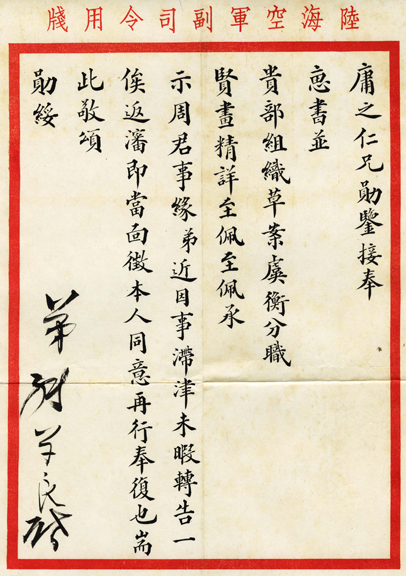 陸海空軍副司令用牋
庸之仁兄勛鑒接奉
惠書並
貴部組織草案虞衡分職
賢畫精詳至佩至佩承
示周君事緣弟近因事滯津未暇轉告一
俟返瀋即當面徵本人同意再行奉復也耑
此敬頌
勛綏
弟張学良啓